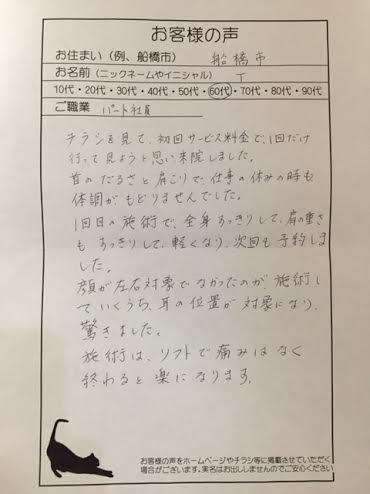 お客様の声
お住まい（例、船橋市） 船橋市
お名前（ニックネームやイニシャル） T
10代・20代・30代・40代・50代・60代・70代・80代・90代
ご職業 パート社員
チラシを見て、初回サービス料金で、1回だけ
行って見ようと思い来院しました。
首のだるさと肩こりで、仕事の休みの時も
体調がもどりませんでした。
1回目の施術で、全身すっきりして、肩の重さ
もすっきりして、軽くなり、次回も予約しま
した。
顔が左右対象でなかったのが施術し
ていくうち、耳の位置が対象になり、
驚きました。
施術は、ソフトで痛みはなく
終わると楽になります。
お客様の声をホームページやチラシ等に掲載させていただく
場合がございます。実名はお出ししませんのでご安心ください